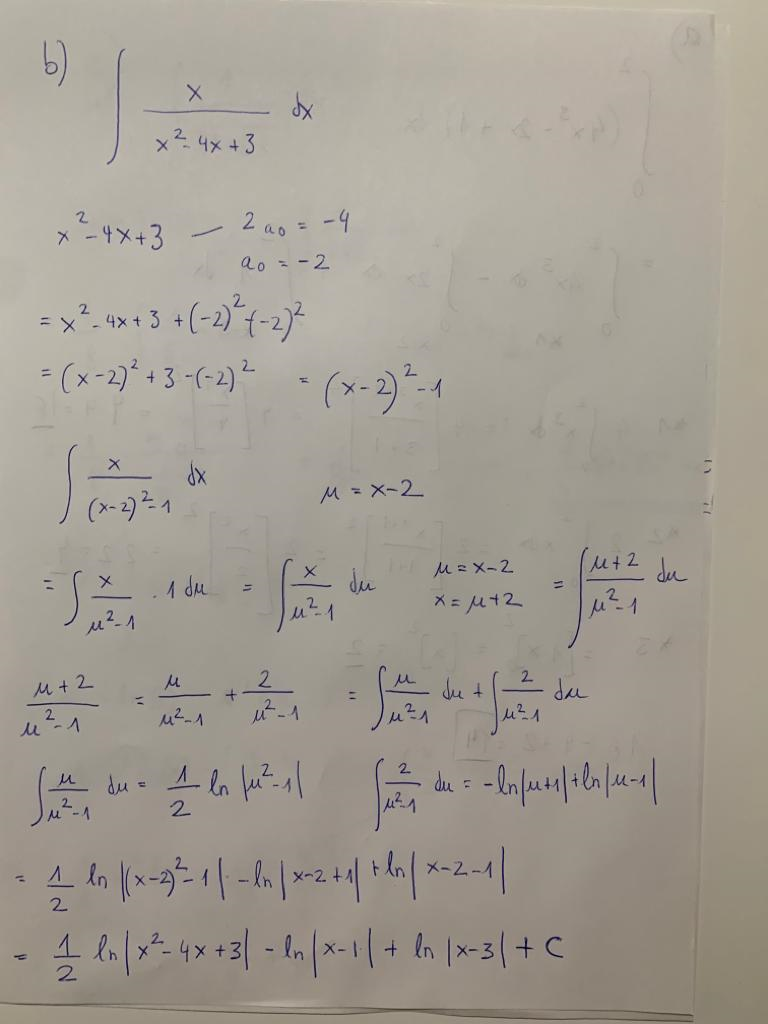 b) ∫ x / (x² - 4x + 3) dx
x² - 4x + 3 — 2a₀ = -4
a₀ = -2
= x² - 4x + 3 + (-2)² - (-2)²
= (x-2)² + 3 - (-2)² = (x-2)² - 1
∫ x / ((x-2)² - 1) dx μ = x-2
= ∫ x / (μ² - 1) · 1 dμ = ∫ x / (μ² - 1) dμ μ = x-2 x = μ+2 = ∫ (μ+2) / (μ² - 1) dμ
(μ+2) / (μ² - 1) = μ / (μ² - 1) + 2 / (μ² - 1) = ∫ μ / (μ² - 1) dμ + ∫ 2 / (μ² - 1) dμ
∫ μ / (μ² - 1) dμ = 1/2 ln |μ² - 1| ∫ 2 / (μ² - 1) dμ = -ln|μ+1| + ln|μ-1|
= 1/2 ln |(x-2)² - 1| - ln |x-2+1| + ln |x-2-1|
= 1/2 ln |x² - 4x + 3| - ln |x-1| + ln |x-3| + C